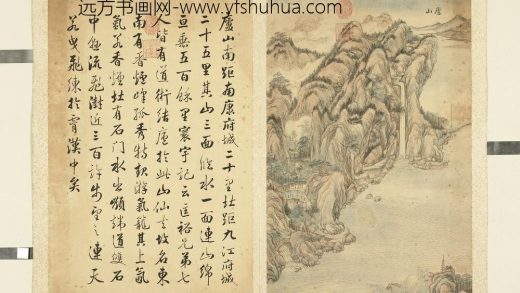 远方书画网-- www.yfshuhua.com
廬山
廬山南距南康府城二十里北距九江府城
二十五里其山三面水一面連山綿
亘五百餘里寰宇記云匡裕兄弟七
人皆有道術結廬於此山仙去故名東
南有香爐峰孤秀特起游氣籠其上氤
氳若香煙北有石門水出嶺端道雙石
中懸流飛澍近三百許步望之連天
若曳飛練於霄漢中矣